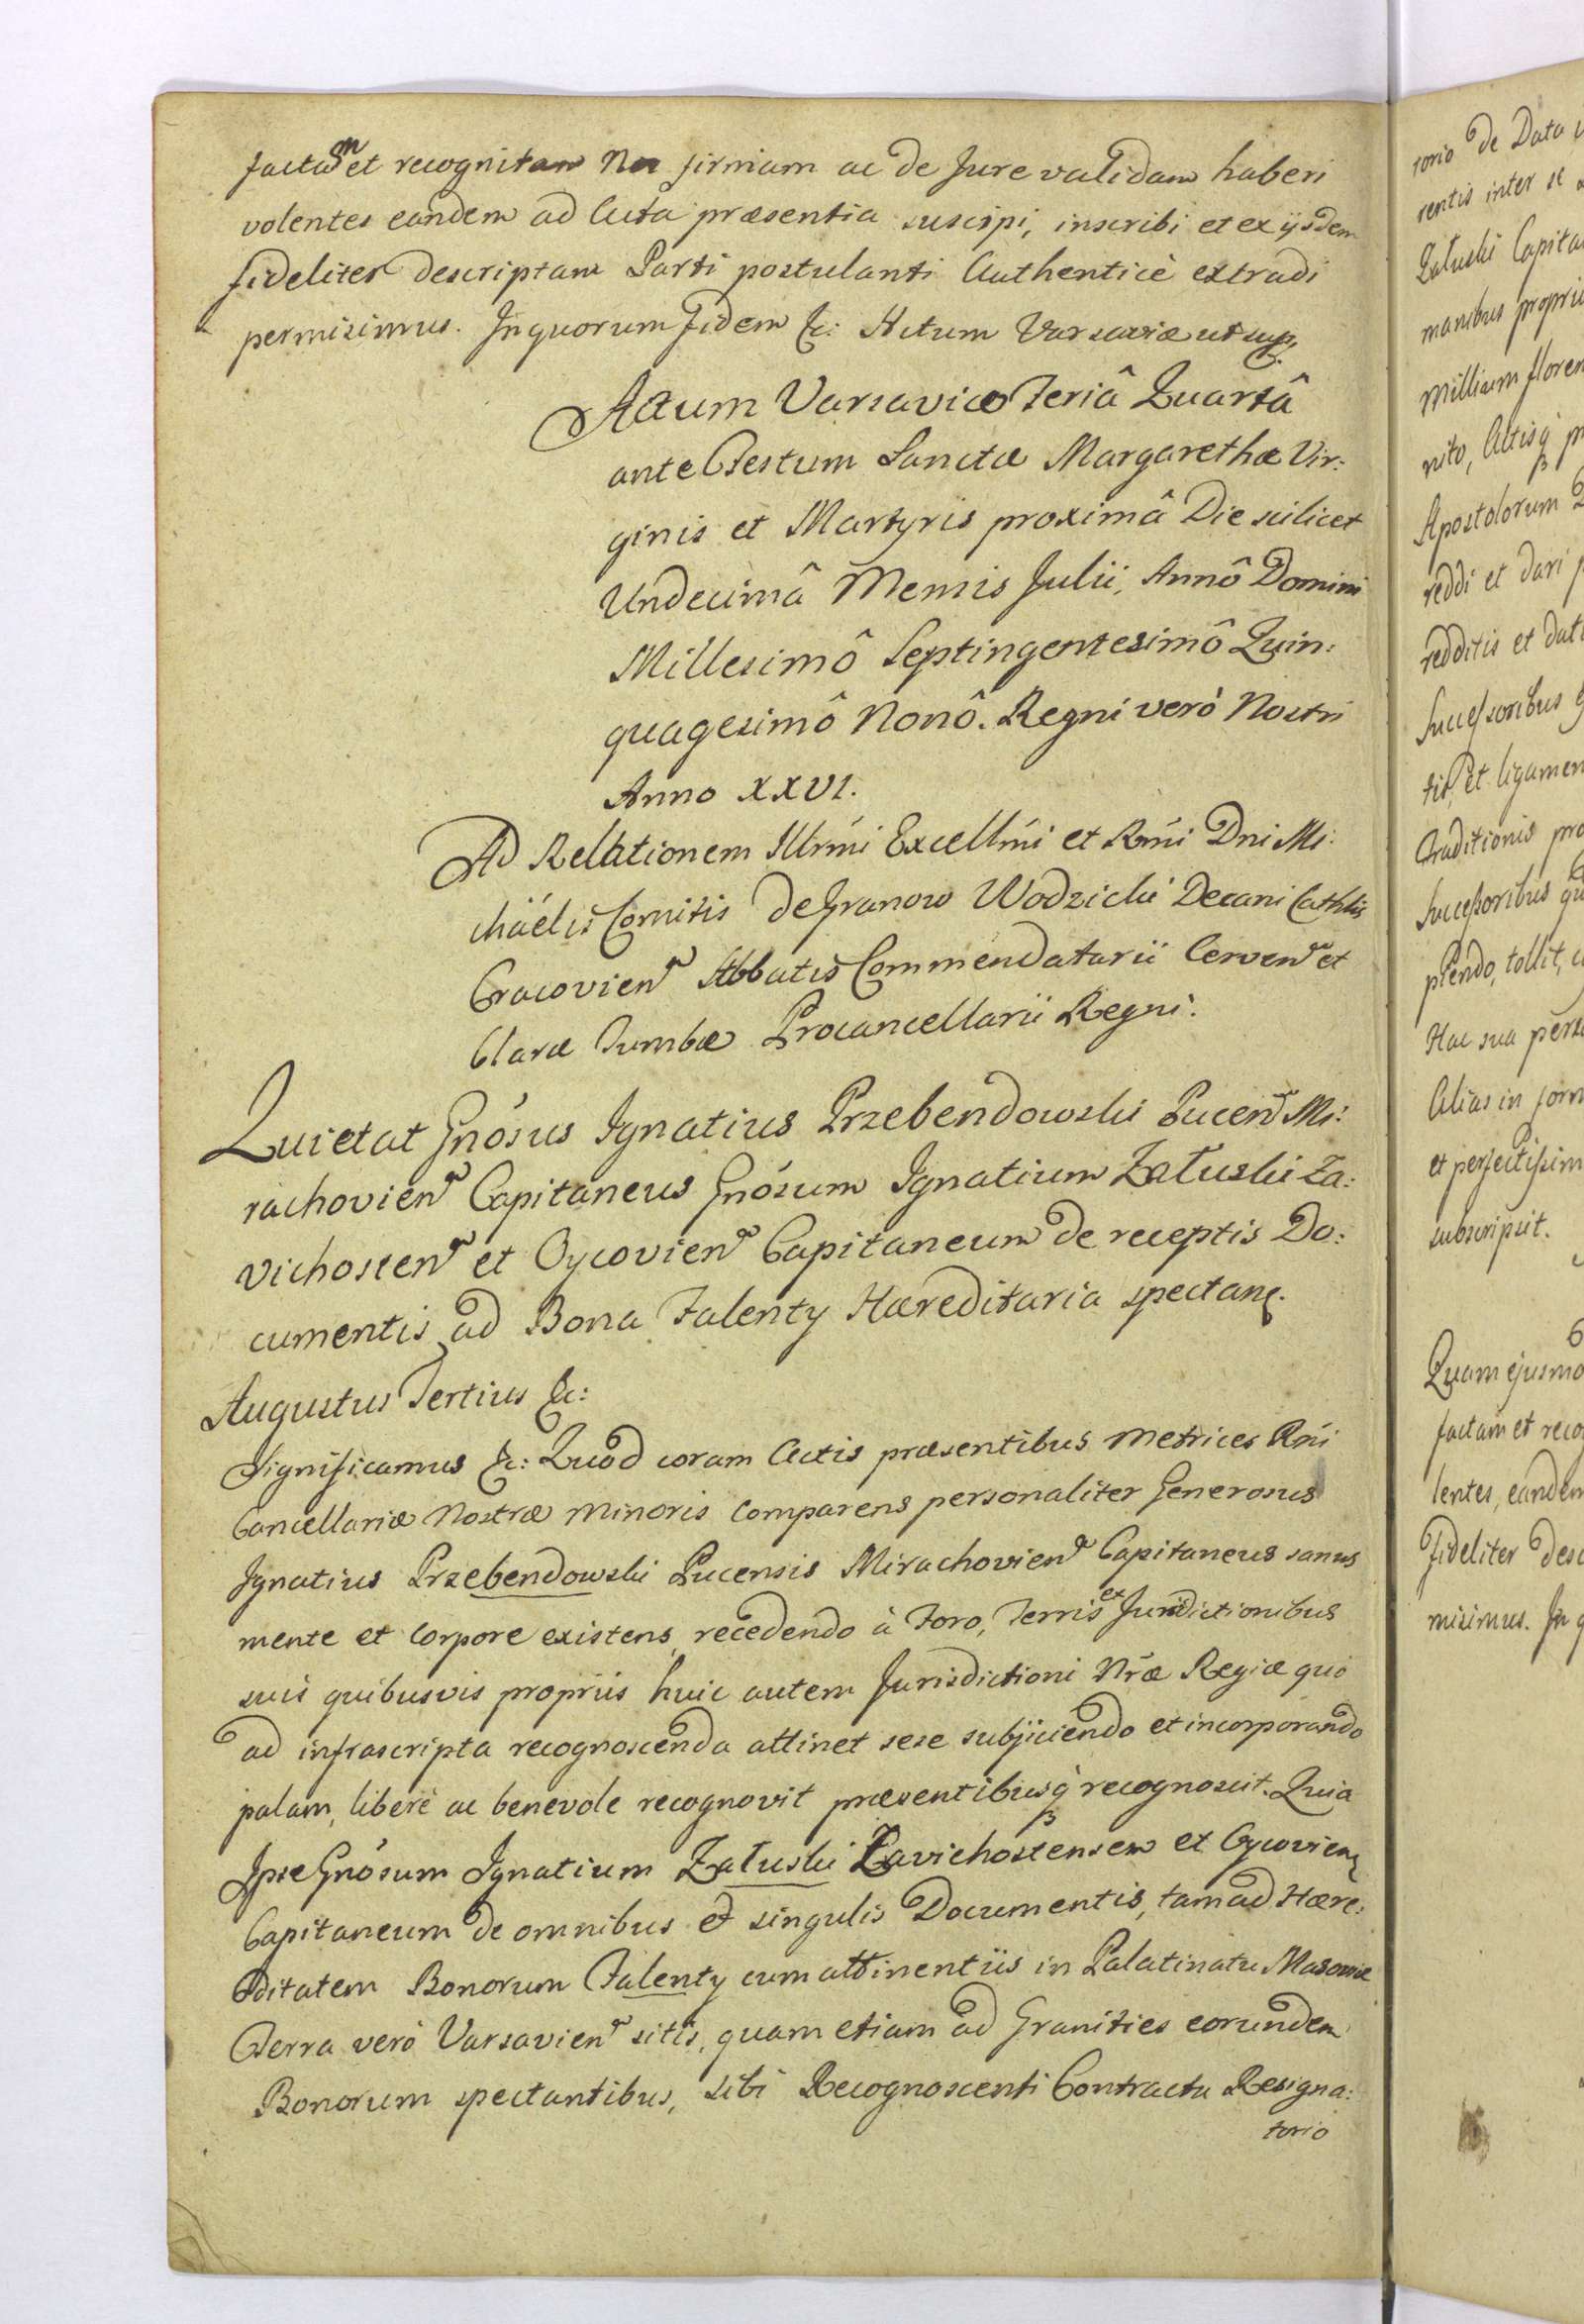 factam et recognitam Nos firmam ac de Jure validam haberi
volentes eandem ad Acta præsentia suscipi, inscribi et ex ijsdem
fideliter descriptam Parti postulanti Authenticè extradi
permisimus. In quorum Fidem &c: Actum Varsaviæ ut sup.
Actum Varsaviæ Feriâ Quartâ
ante Festum Sanctæ Margarethæ Vir:
ginis et Martyris proximâ Die scilicet
Undecimâ Mensis Julii, Annô Domini
Millesimô Septingentesimô Quin:
quagesimô Nonô. Regni verò Nostri
Anno XXVI.
Ad Relationem Illrmi Excellmi et Rmi Dni Mi:
chäelis Comitis de Granow Wodzicki Decani Cathlis
Cracovien Abbatis Commendatarii Cerven et
Claræ Tumbæ Procancellarii Regni.
Quietat Gnosus Ignatius Przebendowski Pucen Mi:
rachovien Capitaneus Gnosum Ignatium Załuski Za:
vichosten et Oycovien Capitaneum de receptis Do:
cumentis ad Bona Falenty Hæreditaria spectan.
Augustus Tertius &c:
Significamus &c: Quod coram Actis præsentibus Metrices Rni
Cancellariæ Nostræ Minoris Comparens personaliter Generosus
Ignatius Przebendowski Pucensis Mirachovien Capitaneus sanus
mente et Corpore existens, recedendo à Foro, Terris et Jurisdictionibus
suis quibusvis propriis huic autem Jurisdictioni Nræ Regiæ quo
ad infrascripta recognoscenda attinet sese subjiciendo et incorporando
palam, liberè ac benevole recognovit præsentibusq recognoscit. Quia
Ipse Gnosum Ignatium Załuski Zavichostensem et Oycovien
Capitaneum de omnibus et singulis Documentis, tam ad Hære:
ditatem Bonorum Falenty cum attinentiis in Palatinatu Masoviæ
Terra verò Varsavien sitis, quam etiam ad Granities eorundem
Bonorum spectantibus, sibi Recognoscenti Contractu Resigna:
torio
torio de Data
rentis inter se
Załuski Capita
manibus propri
Millium floren
nito, Actisq
Apostolorum
reddi et dari
redditis et dati
Successoribus
tis, et ligamen
traditionis pro
Successoribus
plendo, tollit,
Hac sua
Alias in form
et perfectissim
subscripsit.
Quam ejusmo
factam et reco
lentes, eandem
Fideliter desc
misimus. In q